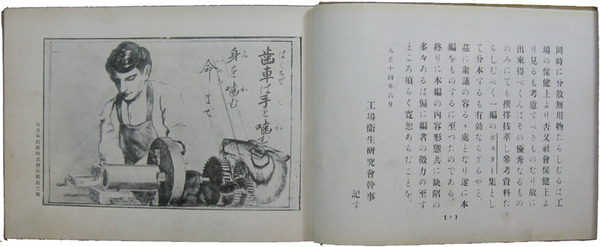 同時に分散無用物たらしむるは工
場の保健上より否又社會保健上よ
り見るも考慮すべきものなり故に
出來得べくんばその優秀なるもの
のみにても撰擇抜萃し參考資料た
らしむべく一編のポスター集とし
て分本するも有効ならざるやと、
茲に衆議の容るゝ處となり遂に本
編をものするに至つたのである。
終りに本編の内容形態共に缺陥の
多々あるは偏に編者の微力の至す
ところ須らく寛恕あらむことを。
大正十四年六月
工場衞生研究會幹事
記す
齒車は手を噛む
身を噛む
命まで